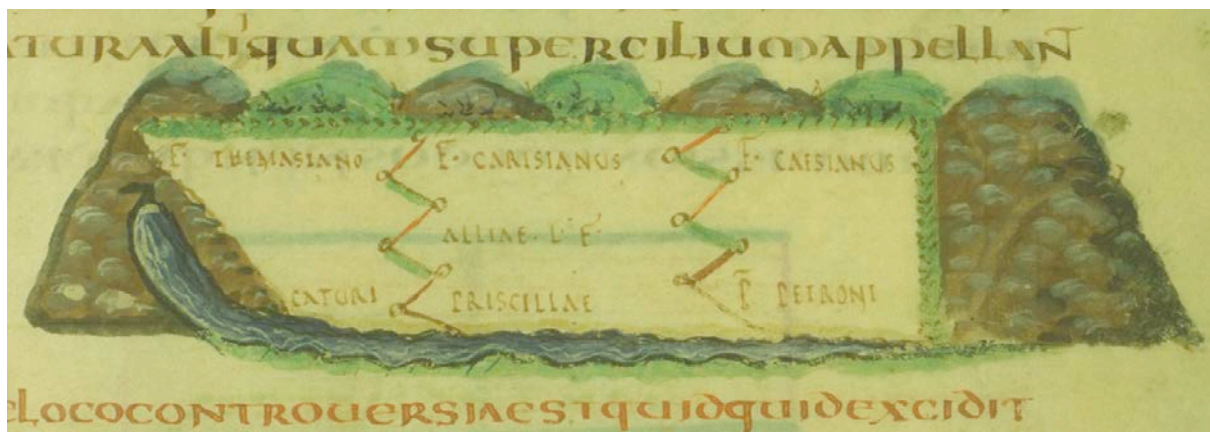 ATURAALIQUAMSUPERCILIUMAPPELLANT
F· THEMASIANO F· CARISIANUS F· CAESIANUS
ALLIAE · L · F ·
CATURI PRISCILLAE P PETRONI
LOCOCONTROUERSIAESTQUIDQUIDEXCIDIT